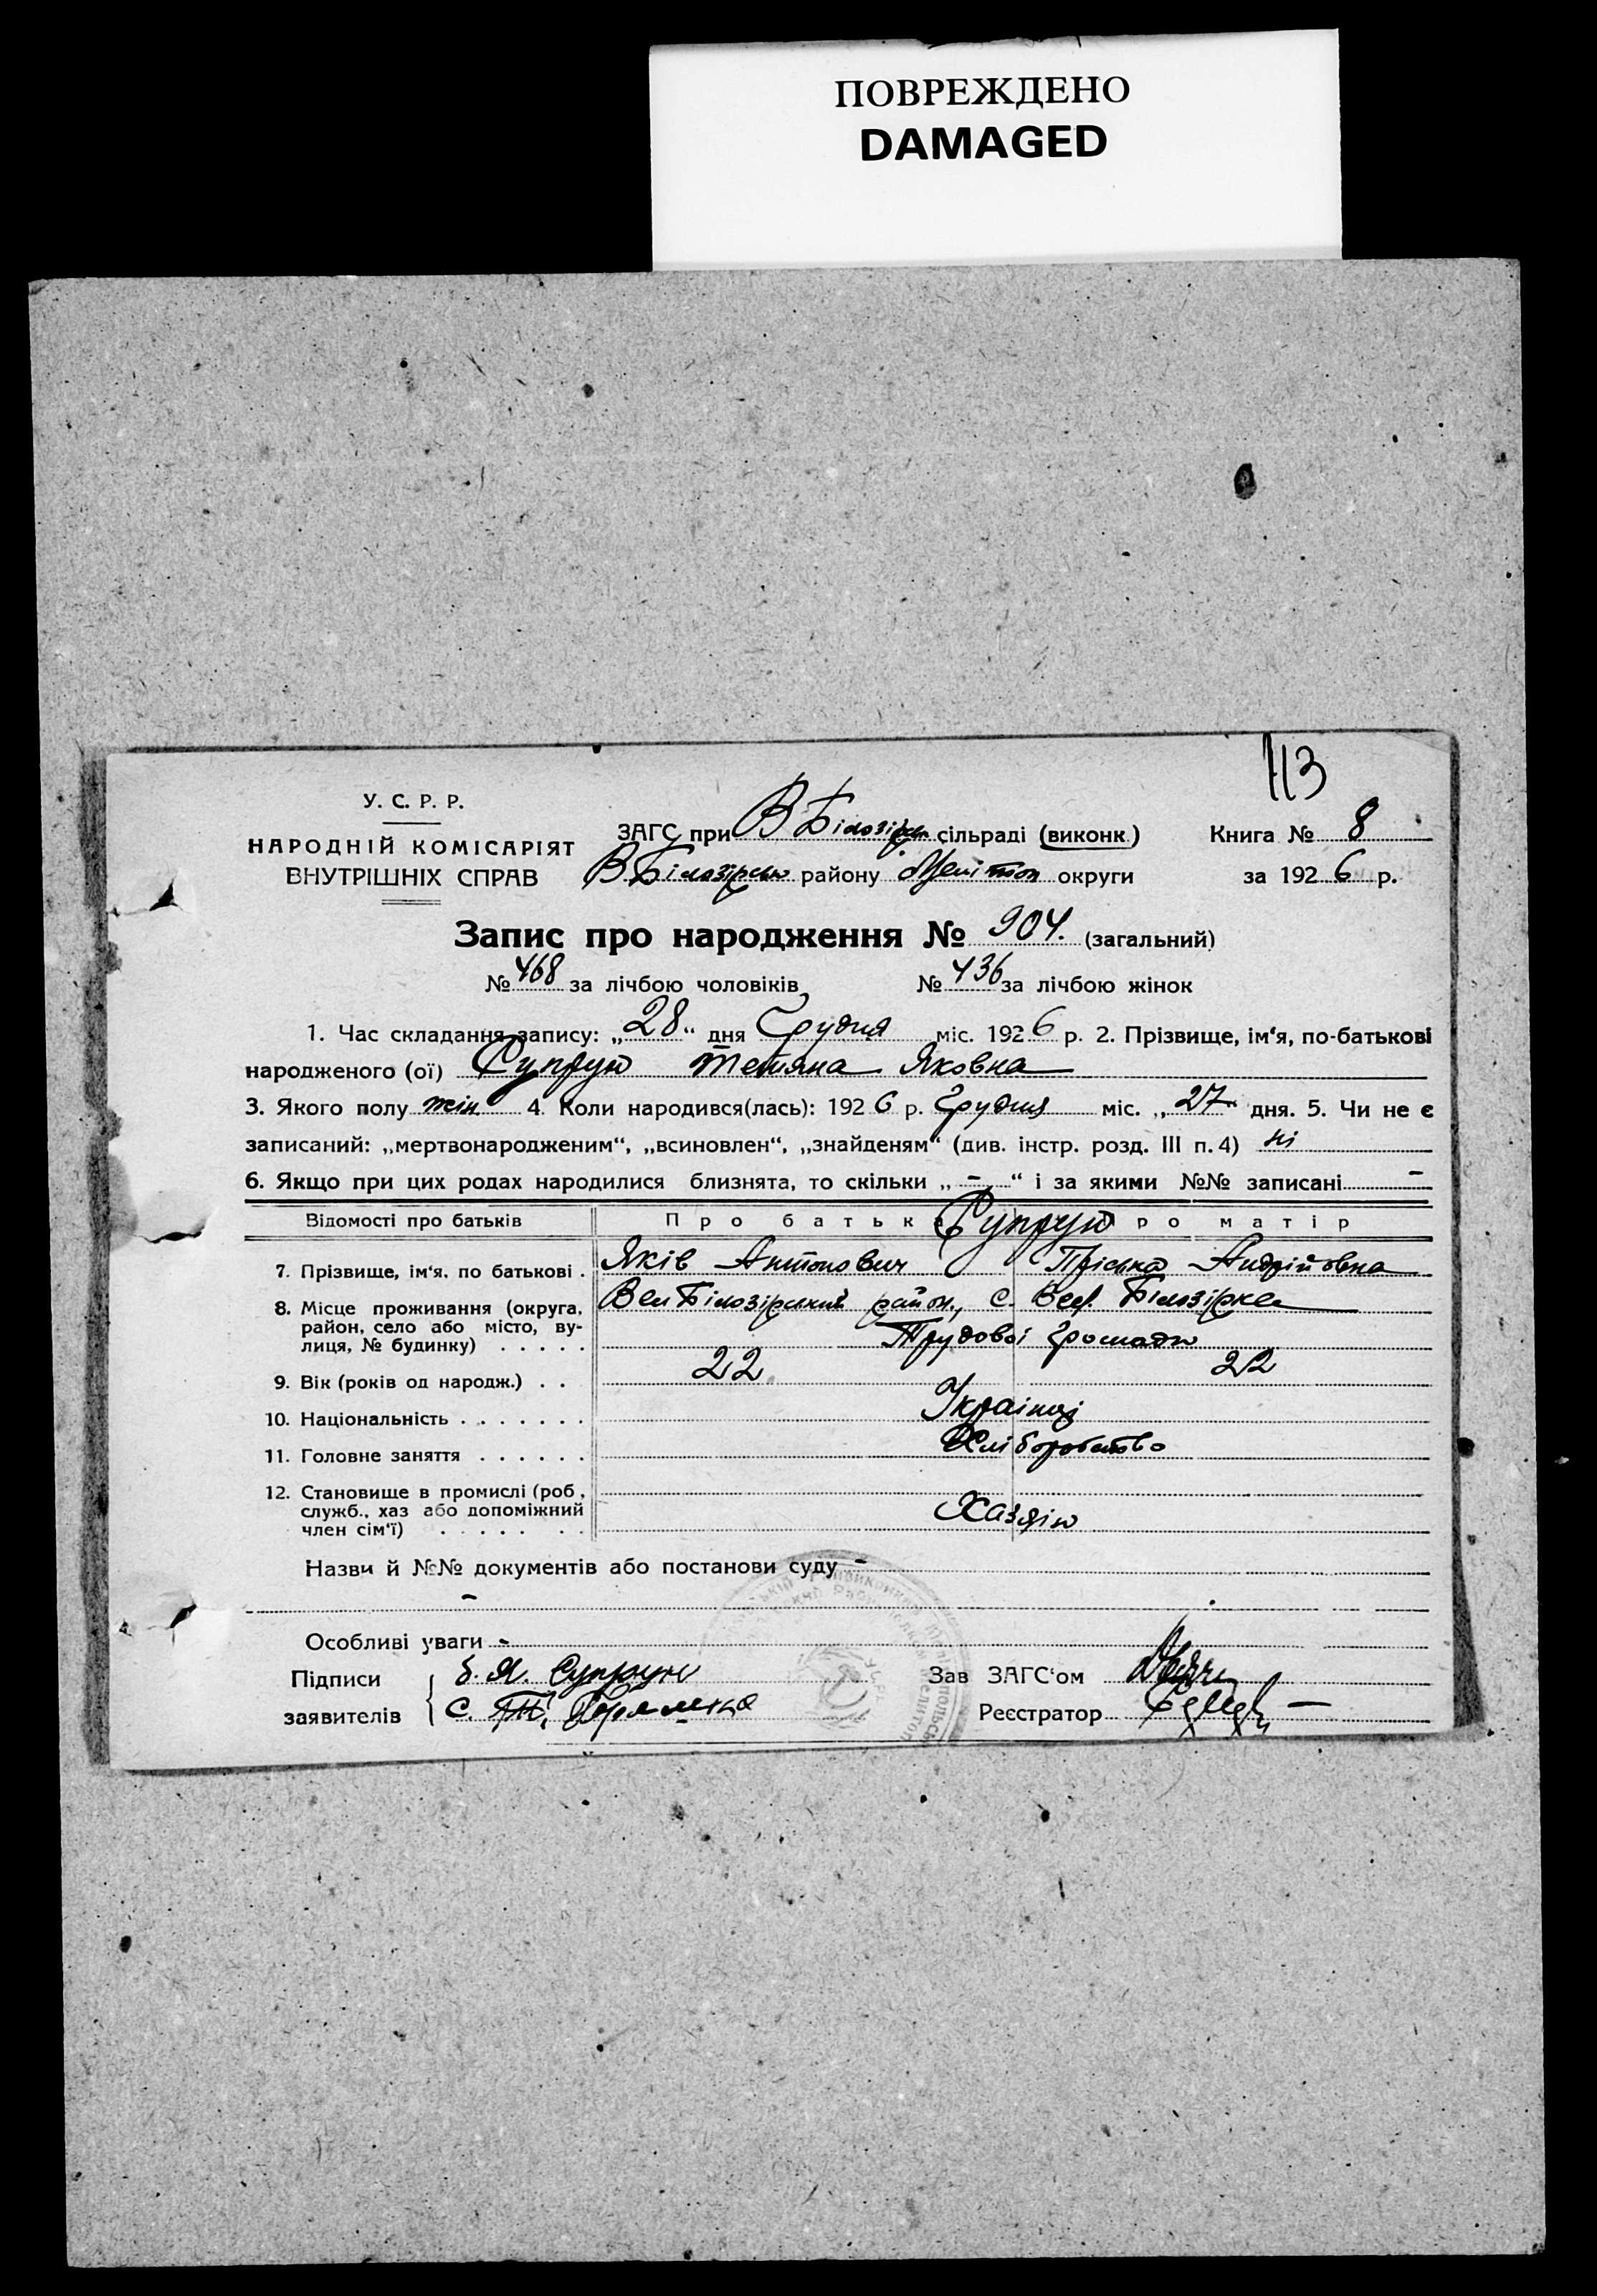 ПОВРЕЖДЕНО
DAMAGED
113
У. С. Р. Р.
НАРОДНІЙ КОМІСАРІЯТ
ВНУТРІШНІХ СПРАВ
ЗАГС при В Білозірск сільраді (виконк.) Книга № 8
В Білозірсько району Меліитоп округи за 1926 р.
Запис про народження № 904. (загальний)
№ 468 за лічбою чоловіків № 436 за лічбою жінок
1. Час складання запису: „28“ дня Грудня міс. 1926 р. 2. Прізвище, ім‘я, по-батькові
народженого (ої) Супрун Тетяна Яковна
3. Якого полу жін 4. Коли народився(лась): 1926 р. Грудня міс. „27“ дня. 5. Чи не є
записаний: „мертвонародженим“, „всиновлен“, „знайденям“ (див. інстр. розд. III п. 4) ні
6. Якщо при цих родах народилися близнята, то скільки „-“ і за якими №№ записані -
Відомості про батьків Про батька Про матір
Супрун
7. Прізвище, ім‘я, по батькові . Яків Антонович Пріська Андрійовна
8. Місце проживання (округа, район, село або місто, вулиця, № будинку) . . . . . Вел Білозірський район., с. Вел. Білозірка
Трудової Громади
9. Вік (років од народж.) . . 22 22
10. Національність . . . . . . . Українці
11. Головне заняття . . . . . . Хліборобство
12. Становище в промислі (роб., служб., хаз або допоміжний член сім‘ї) . . . . . . . Хазяін
Назви й №№ документів або постанови суду -
-
Особливі уваги -
Підписи б. Я. Супрун Зав ЗАГС‘ом
заявителів с. Реєстратор